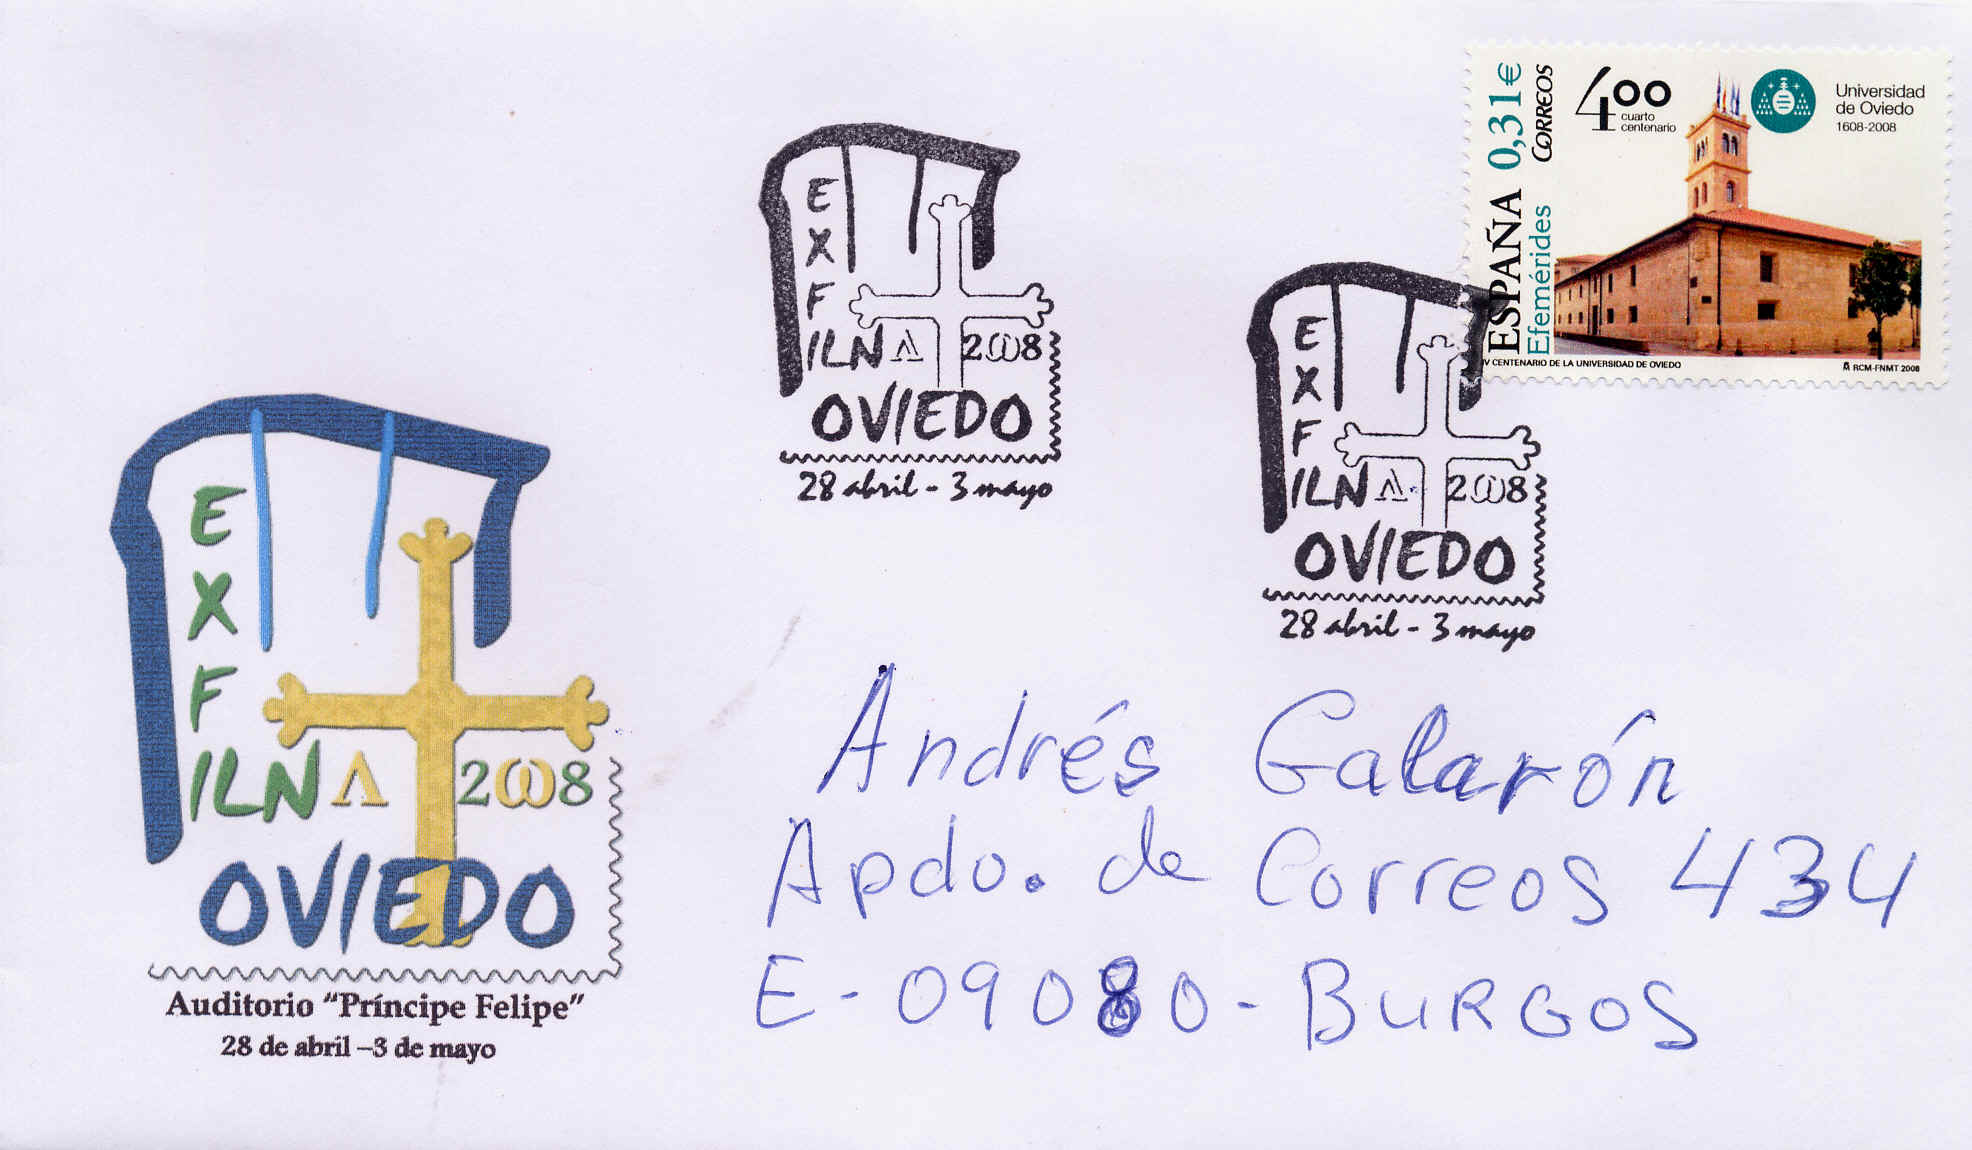 ESPAÑA 0,31€
Efemérides CORREOS
400
cuarto
centenario
Universidad
de Oviedo
1608-2008
IV CENTENARIO DE LA UNIVERSIDAD DE OVIEDO
RCM-FNMT 2008
E
X
F
ILNΛ 2ω8
OVIEDO
28 abril - 3 mayo
E
X
F
ILNΛ 2ω8
OVIEDO
28 abril - 3 mayo
E
X
F
ILNΛ 2ω8
OVIEDO
Auditorio “Príncipe Felipe”
28 de abril –3 de mayo
Andrés Galarón
Apdo. de Correos 434
E - 09080 - BURGOS